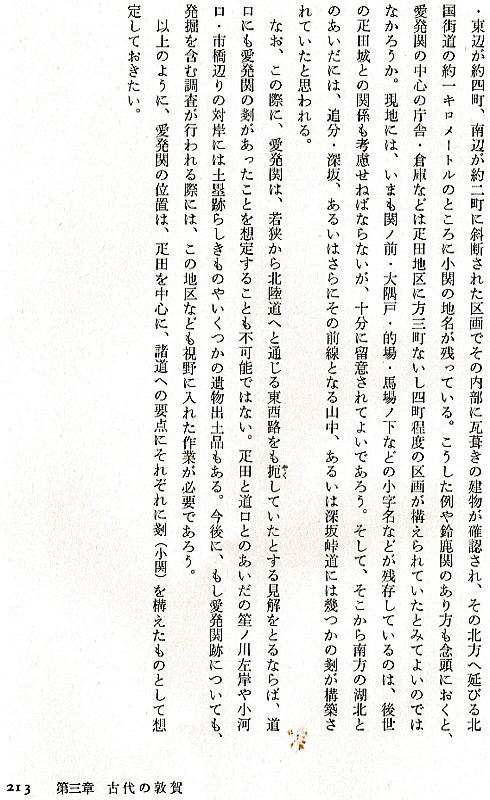 ・東辺が約四町、南辺が約二町に斜断された区画でその内部に瓦葺きの建物が確認され、その北方へ延びる北
国街道の約一キロメートルのところに小関の地名が残っている。こうした例や鈴鹿関のあり方も念頭におくと、
愛発関の中心の庁舎・倉庫などは疋田地区に方三町ないし四町程度の区画が構えられていたとみてよいのでは
なかろうか。現地には、いまも関ノ前・大隅戸・的場・馬場ノ下などの小字名などが残存しているのは、後世
の疋田城との関係も考慮せねばならないが、十分に留意されてよいであろう。そして、そこから南方の湖北と
のあいだには、追分・深坂、あるいはさらにその前線となる山中、あるいは深坂峠道には幾つかの剗が構築さ
れていたと思われる。
なお、この際に、愛発関は、若狭から北陸道へと通じる東西路をも扼していたとする見解をとるならば、道
やく
口にも愛発関の剗があったことを想定することも不可能ではない。疋田と道口とのあいだの笙ノ川左岸や小河
口・市橋辺りの対岸には土塁跡らしきものやいくつかの遺物出土品もある。今後に、もし愛発関跡についても、
発掘を含む調査が行われる際には、この地区なども視野に入れた作業が必要であろう。
以上のように、愛発関の位置は、疋田を中心に、諸道への要点にそれぞれに剗（小関）を構えたものとして想
定しておきたい。
213 第三章 古代の敦賀